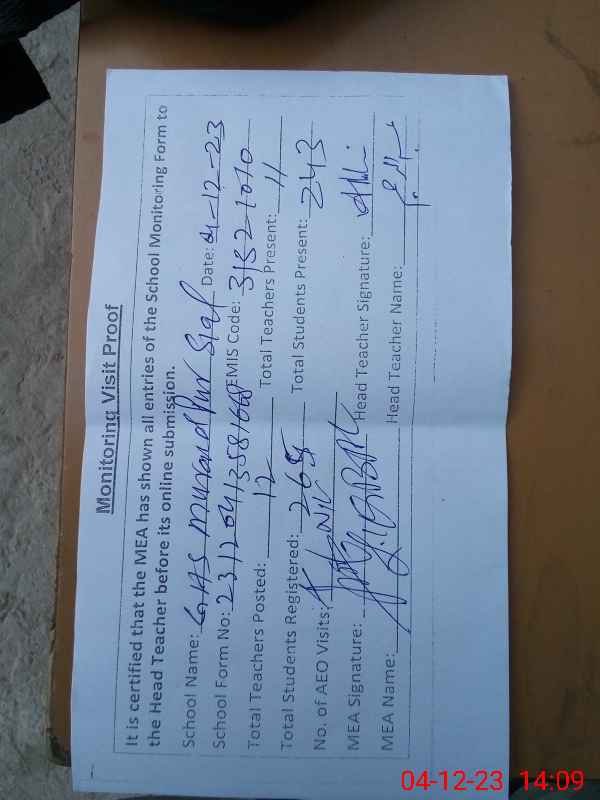 Monitoring Visit Proof
It is certified that the MEA has shown all entries of the School Monitoring Form to
the Head Teacher before its online submission.
School Name: GHS Murand Pur Sial Date: 04-12-23
School Form No: EMIS Code: 31321010
Total Teachers Posted: 12 Total Teachers Present: 11
Total Students Registered: 268 Total Students Present: 243
No. of AEO Visits:
MEA Signature: Head Teacher Signature:
MEA Name: Head Teacher Name:
04-12-23 14:09